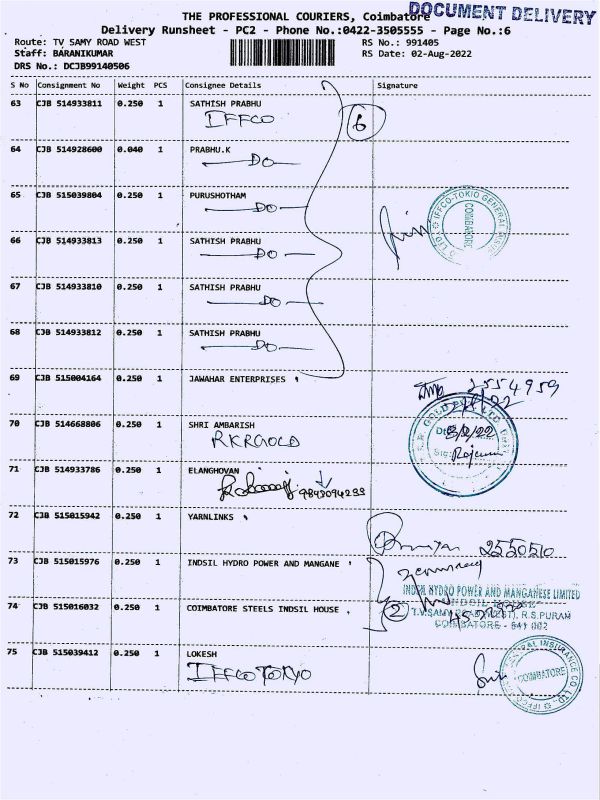 DOCUMENT DELIVERY
THE PROFESSIONAL COURIERS, Coimbatore
Delivery Runsheet - PC2 - Phone No.:0422-3505555 - Page No.:6
Route: TV SAMY ROAD WEST
RS No.: 991405
Staff: BARANIKUMAR
RS Date: 02-Aug-2022
DRS No.: DCJB99140506
S No Consignment No Weight PCS Consignee Details Signature
63 CJB 514933811 0.250 1 SATHISH PRABHU
IFFCO
6
64 CJB 514928600 0.040 1 PRABHU.K
DO
65 CJB 515039804 0.250 1 PURUSHOTHAM
DO
IFFCO-TOKIO GENERAL
COIMBATORE
66 CJB 514933813 0.250 1 SATHISH PRABHU
DO
67 CJB 514933810 0.250 1 SATHISH PRABHU
DO
68 CJB 514933812 0.250 1 SATHISH PRABHU
DO
69 CJB 515004164 0.250 1 JAWAHAR ENTERPRISES
2554959
70 CJB 514668806 0.250 1 SHRI AMBARISH
RKRGOLD
GOLD PVT LTD
71 CJB 514933786 0.250 1 ELANGHOVAN
9843094233
72 CJB 515015942 0.250 1 YARNLINKS
2550510
73 CJB 515015976 0.250 1 INDSIL HYDRO POWER AND MANGANE
INDSIL HYDRO POWER AND MANGANESE LIMITED
INDSIL HOUSE
74 CJB 515016032 0.250 1 COIMBATORE STEELS INDSIL HOUSE
2
T.V.SAMY ROAD (WEST), R.S.PURAM
COIMBATORE - 641 002
75 CJB 515039412 0.250 1 LOKESH
IFFCO TOKYO
GENERAL INSURANCE CO LTD.
COIMBATORE